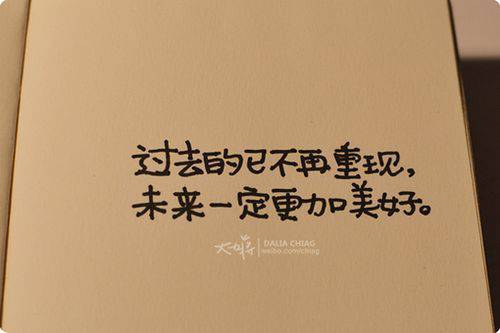 过去的已不再重现，
未来一定更加美好。
DALIA CHIAG
weibo.com/chiag